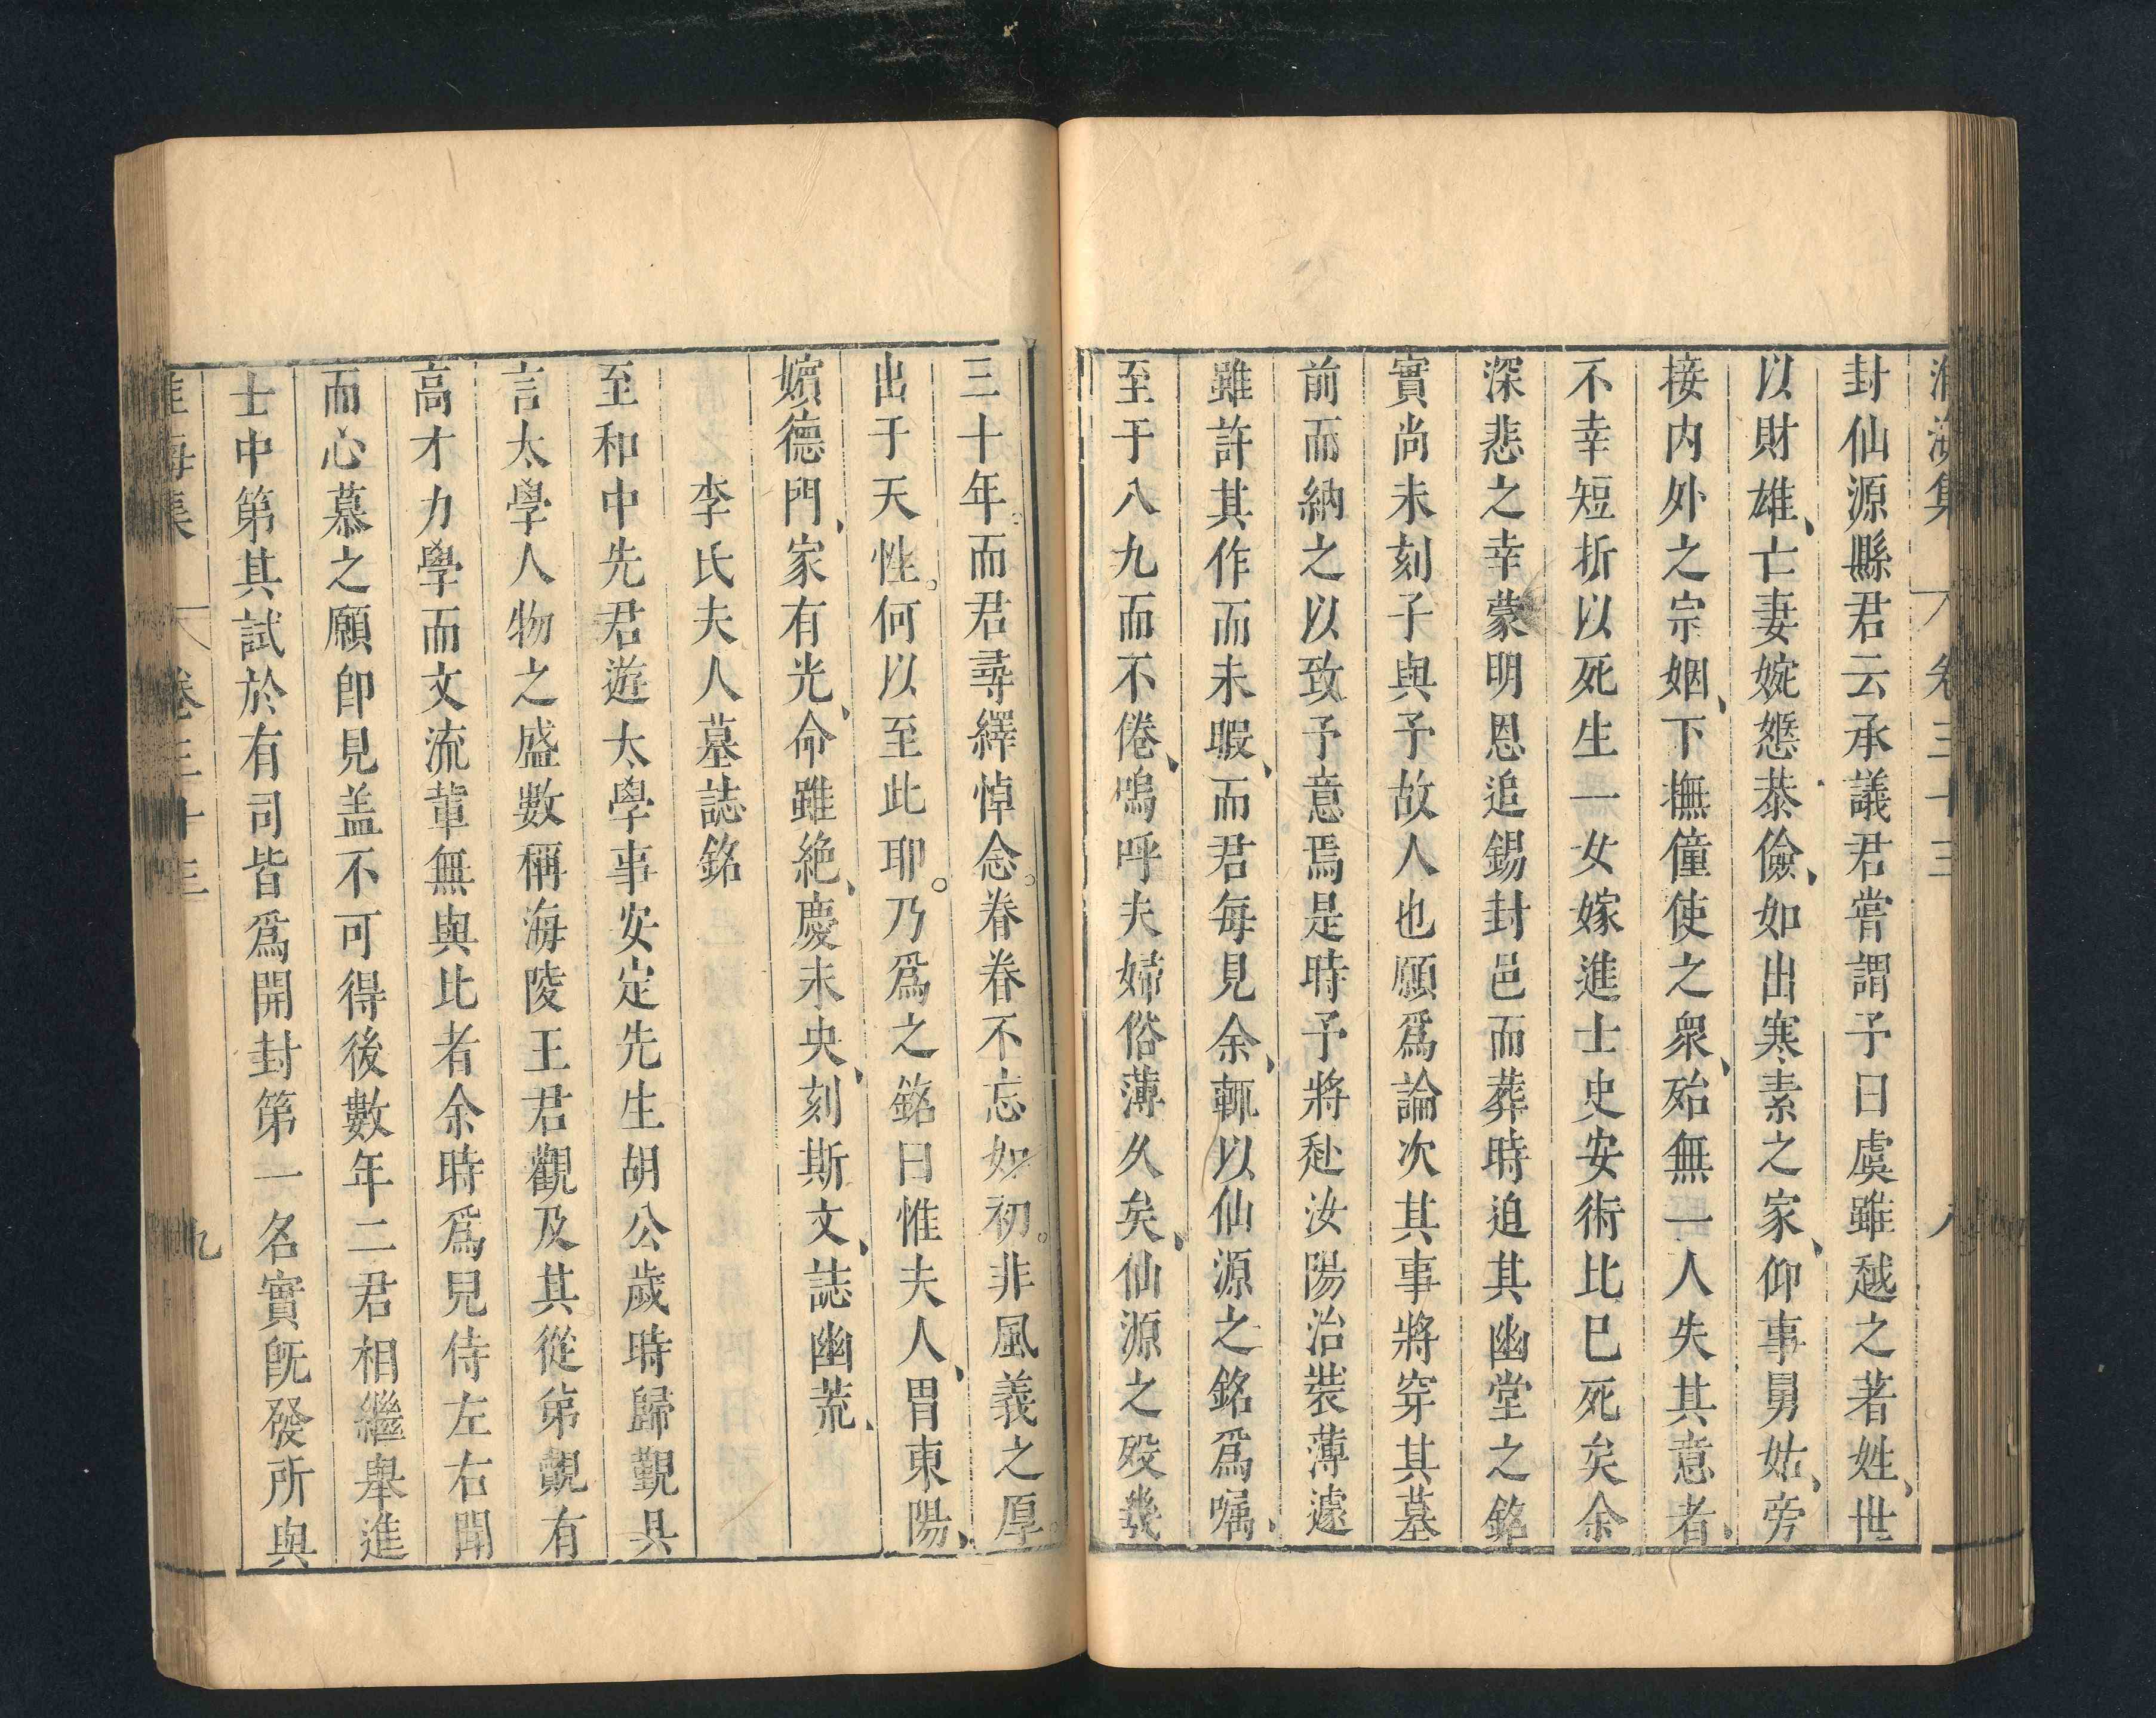 淮海集 卷三十三 八
封仙源縣君云承議君嘗謂予曰虞雖越之著姓、世
以財雄、亡妻婉愻恭儉、如出寒素之家、仰事舅姑、旁
接内外之宗姻、下撫僮使之衆、殆無一人失其意者、
不幸短折以死生一女嫁進士史安術比巳死矣余
深悲之幸蒙明恩追錫封邑而葬時迫其幽堂之銘
實尚未刻子與予故人也願爲論次其事將穿其墓
前而納之以致予意焉是時予將赴汝陽治裝薄遽
雖許其作而未暇、而君每見余、輒以仙源之銘爲嘱、
至于八九而不倦、嗚呼夫婦俗薄久矣、仙源之歿幾
三十年。而君尋繹悼念。眷眷不忘如初。非風義之厚。
出于天性。何以至此耶。乃爲之銘曰惟夫人、胃東陽、
嬪德門、家有光、命雖絶、慶未央、刻斯文、誌幽荒、
李氏夫人墓誌銘
至和中先君遊太學事安定先生胡公歲時歸覲具
言太學人物之盛數稱海陵王君觀及其從弟覿有
高才力學而文流輩無與比者余時爲兒侍左右聞
而心慕之願卽見盖不可得後數年二君相繼舉進
士中第其試於有司皆爲開封第一名實旣發所與
淮海集 卷三十三 九